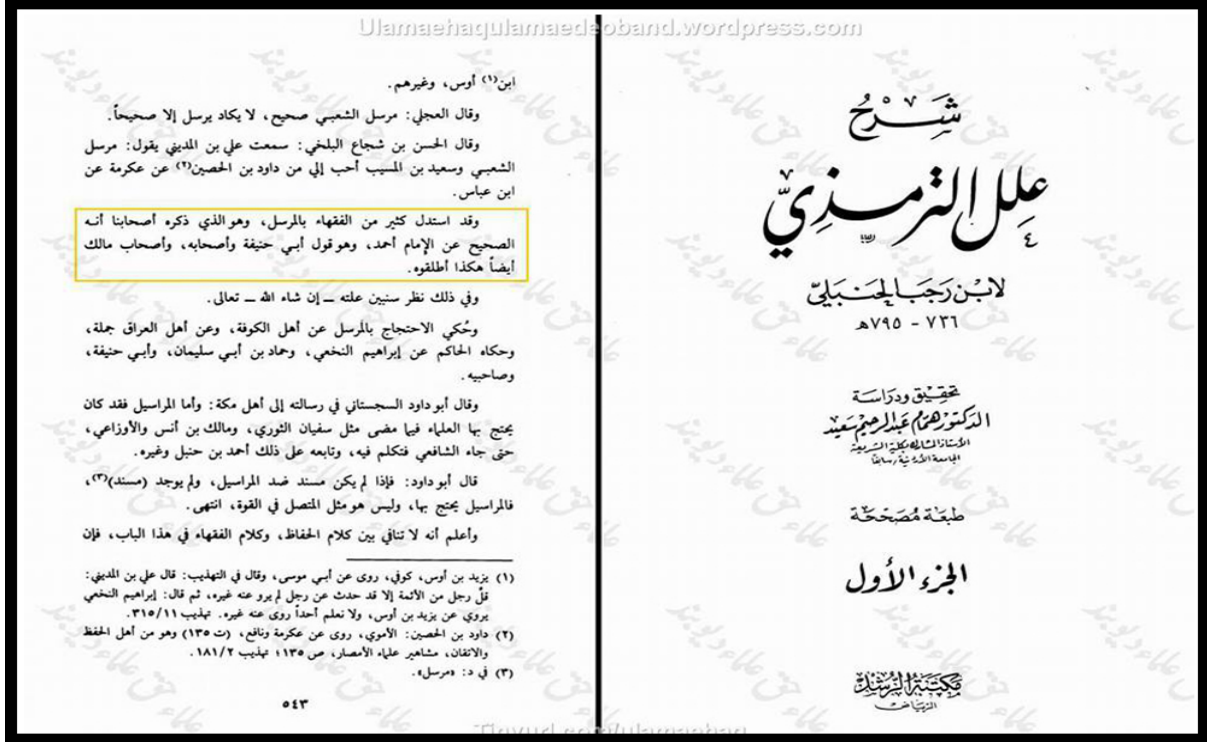 Ulamaehaqulamaedeoband.wordpress.com
شرح
علل الترمذي
لابن رجب الحنبلي
٧٣٦ - ٧٩٥ هـ
تحقيق ودراسة
الدكتور همام عبد الرحيم سعيد
الأستاذ المشارك بكلية الشريعة
الجامعة الأردنية سابقاً
طبعة مصححة
الجزء الأول
مكتبة الرشد
الرياض
ابن(١) أوس، وغيرهم.
وقال العجلي: مرسل الشعبي صحيح، لا يكاد يرسل إلا صحيحاً.
وقال الحسن بن شجاع البلخي: سمعت علي بن المديني يقول: مرسل
الشعبي وسعيد بن المسيب أحب إلي من داود بن الحصين(٢) عن عكرمة عن
ابن عباس.
وقد استدل كثير من الفقهاء بالمرسل، وهو الذي ذكره أصحابنا أنه
الصحيح عن الإمام أحمد، وهو قول أبي حنيفة وأصحابه، وأصحاب مالك
أيضاً هكذا أطلقوه.
وفي ذلك نظر سنبين علته ــ إن شاء الله ــ تعالى.
وحُكي الاحتجاج بالمرسل عن أهل الكوفة، وعن أهل العراق جملة،
وحكاه الحاكم عن إبراهيم النخعي، وحماد بن أبي سليمان، وأبي حنيفة،
وصاحبيه.
وقال أبو داود السجستاني في رسالته إلى أهل مكة: وأما المراسيل فقد كان
يحتج بها العلماء فيما مضى مثل سفيان الثوري، ومالك بن أنس والأوزاعي،
حتى جاء الشافعي فتكلم فيه، وتابعه على ذلك أحمد بن حنبل وغيره.
قال أبو داود: فإذا لم يكن مسند ضد المراسيل، ولم يوجد (مسند)(٣)،
فالمراسيل يحتج بها، وليس هو مثل المتصل في القوة، انتهى.
وأعلم أنه لا تنافي بين كلام الحفاظ، وكلام الفقهاء في هذا الباب، فإن
(١) يزيد بن أوس، كوفي، روى عن أبي موسى، وقال في التهذيب: قال علي بن المديني:
قلّ رجل من الأئمة إلا قد حدث عن رجل لم يرو عنه غيره، ثم قال: إبراهيم النخعي
يروي عن يزيد بن أوس، ولا نعلم أحداً روى عنه غيره. تهذيب ٣١٥/١١.
(٢) داود بن الحصين: الأموي، روى عن عكرمة ونافع، (ت ١٣٥) وهو من أهل الحفظ
والاتقان، مشاهير علماء الأمصار، ص ١٣٥؛ تهذيب ١٨١/٢.
(٣) في د: «مرسل».
٥٤٣
Tinyurl.com/ulamaehaq